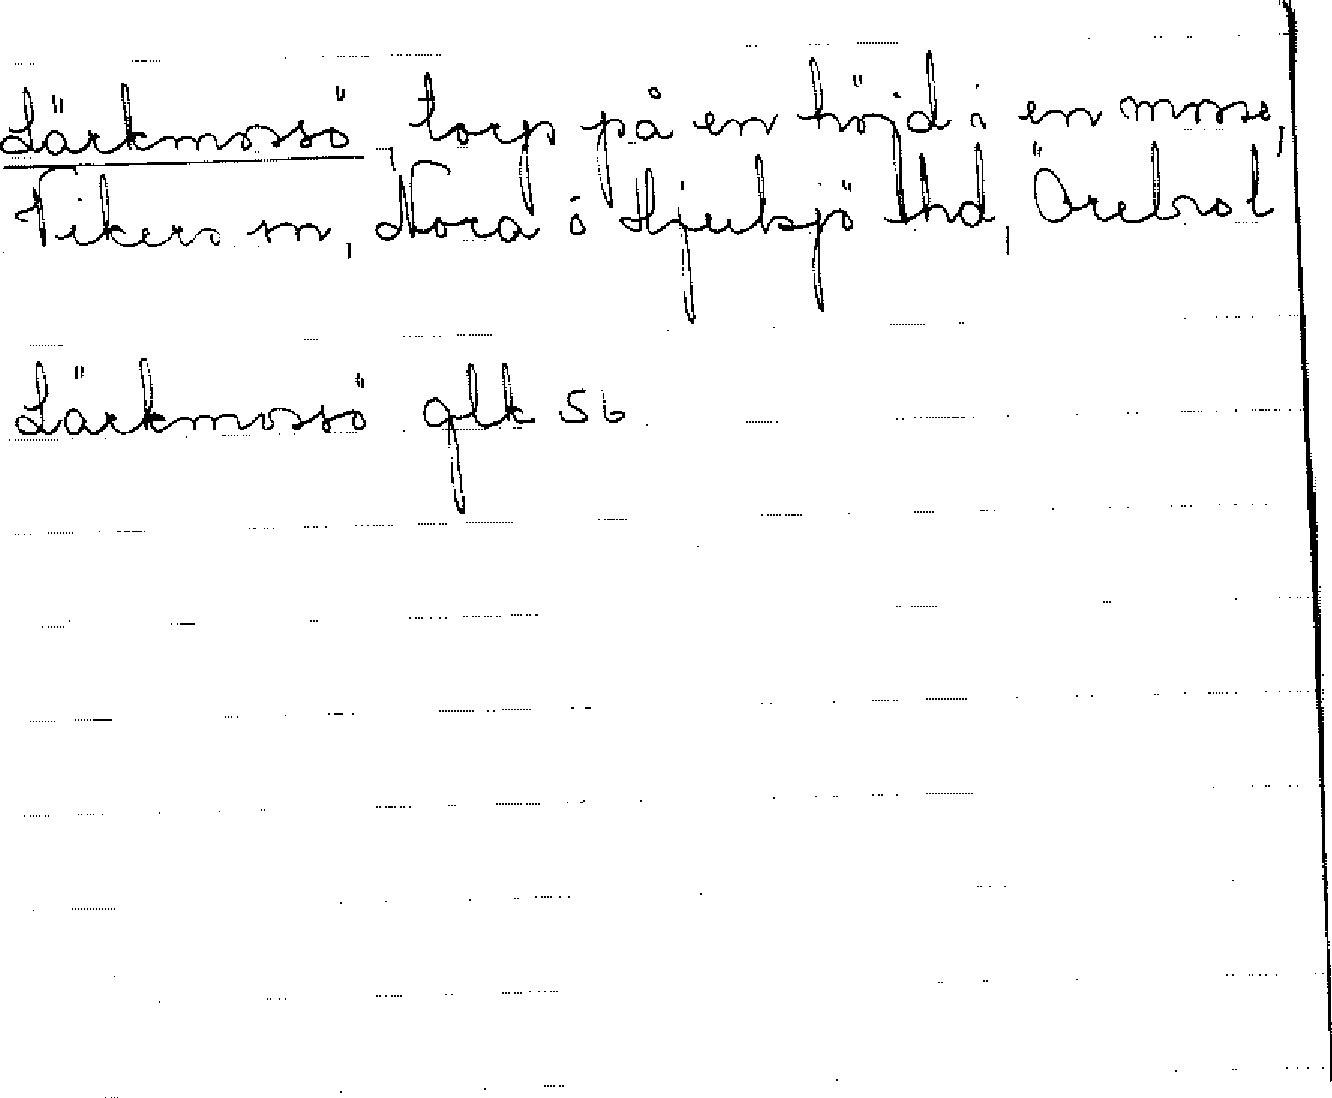 Lärkmossö, torp på en höjd i en mosse,
Vikers sn, Nora o Hjulsjö hd, Örebro l
Lärkmossö glk 56